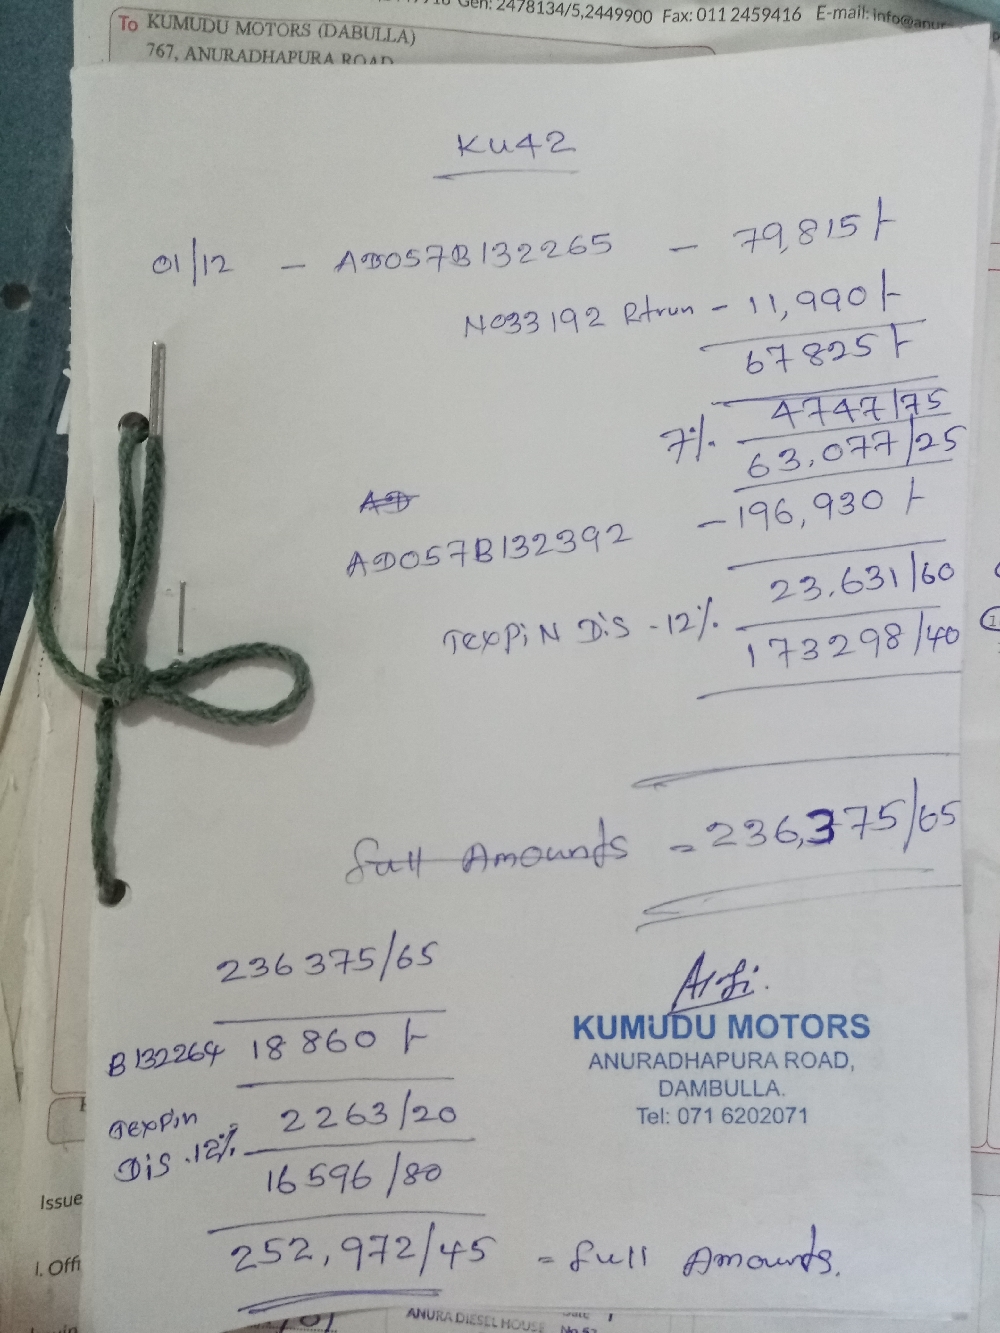 Gen: 2478134/5,2449900 Fax: 011 2459416 E-mail: info@anur
To KUMUDU MOTORS (DABULLA)
767, ANURADHAPURA ROAD
KU42
01/12 - AD057B132265 - 79,815/-
N033192 Rtrun - 11,990/-
67825/-
7% 4747/75
63,077/25
AD
AD057B132392 - 196,930/-
23,631/60
TexPiN DiS - 12%.
173298/40
full Amounds = 236,375/65
236375/65
B132264 18860/-
TexPin
Dis .12% 2263/20
16596/80
252,972/45 = full Amounds.
KUMUDU MOTORS
ANURADHAPURA ROAD,
DAMBULLA.
Tel: 071 6202071
Issue
I. Offi
ANURA DIESEL HOUSE